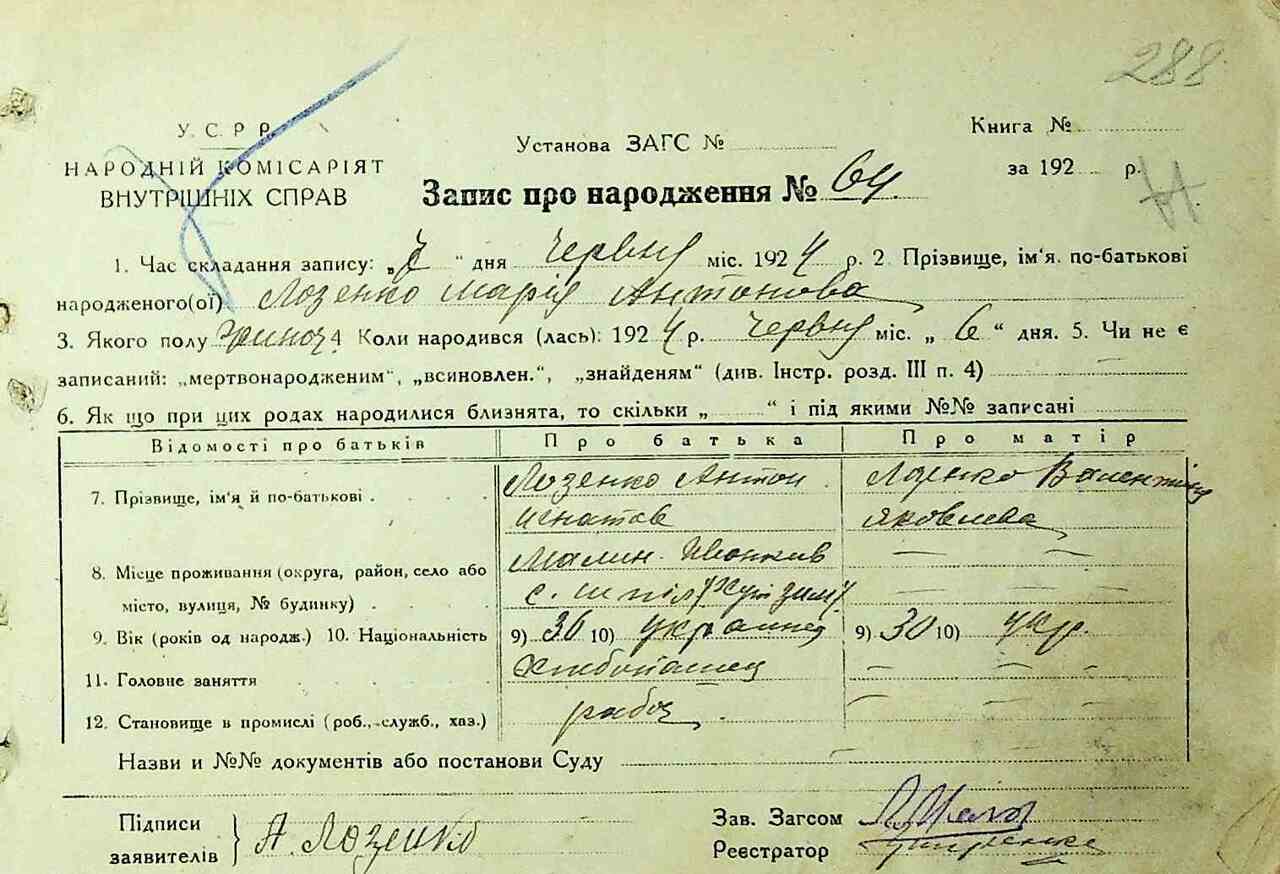 288
У. С. Р. Р.
НАРОДНІЙ КОМІСАРІЯТ
ВНУТРІШНІХ СПРАВ
Установа ЗАГС №
Книга №
за 192 р.
Запис про народження № 64.
1. Час складання запису: „ “ дня червня міс. 1924 р. 2 Прізвище, ім‘я. по-батькові
народженого(ої) Лозенко Марія Антонова
3. Якого полу 4 Коли народився (лась): 1924 р. червня міс. „ 6 “ дня. 5. Чи не є
записаний: „мертвонародженим“, „всиновлен.“, „знайденям“ (див. Інстр. розд. III п. 4) —
6. Як що при цих родах народилися близнята, то скільки „ “ і під якими №№ записані
Відомості про батьків Про батька Про матір
7. Прізвище, ім‘я й по-батькові . Лозенко Антон Игнатов Лозенко Валентина Яковлева
8. Місце проживання (округа, район, село або
місто, вулиця, № будинку) Малин. с. — — — — — —
9. Вік (років од народж.) 10. Національність 9) 36 10) 9) 30 10) укр.
11. Головне заняття Хлебопашец — — —
12. Становище в промислі (роб., служб., хаз.) — — —
Назви и №№ документів або постанови Суду — — —
Підписи
заявителів } А. Лозенко
Зав. Загсом
Реєстратор